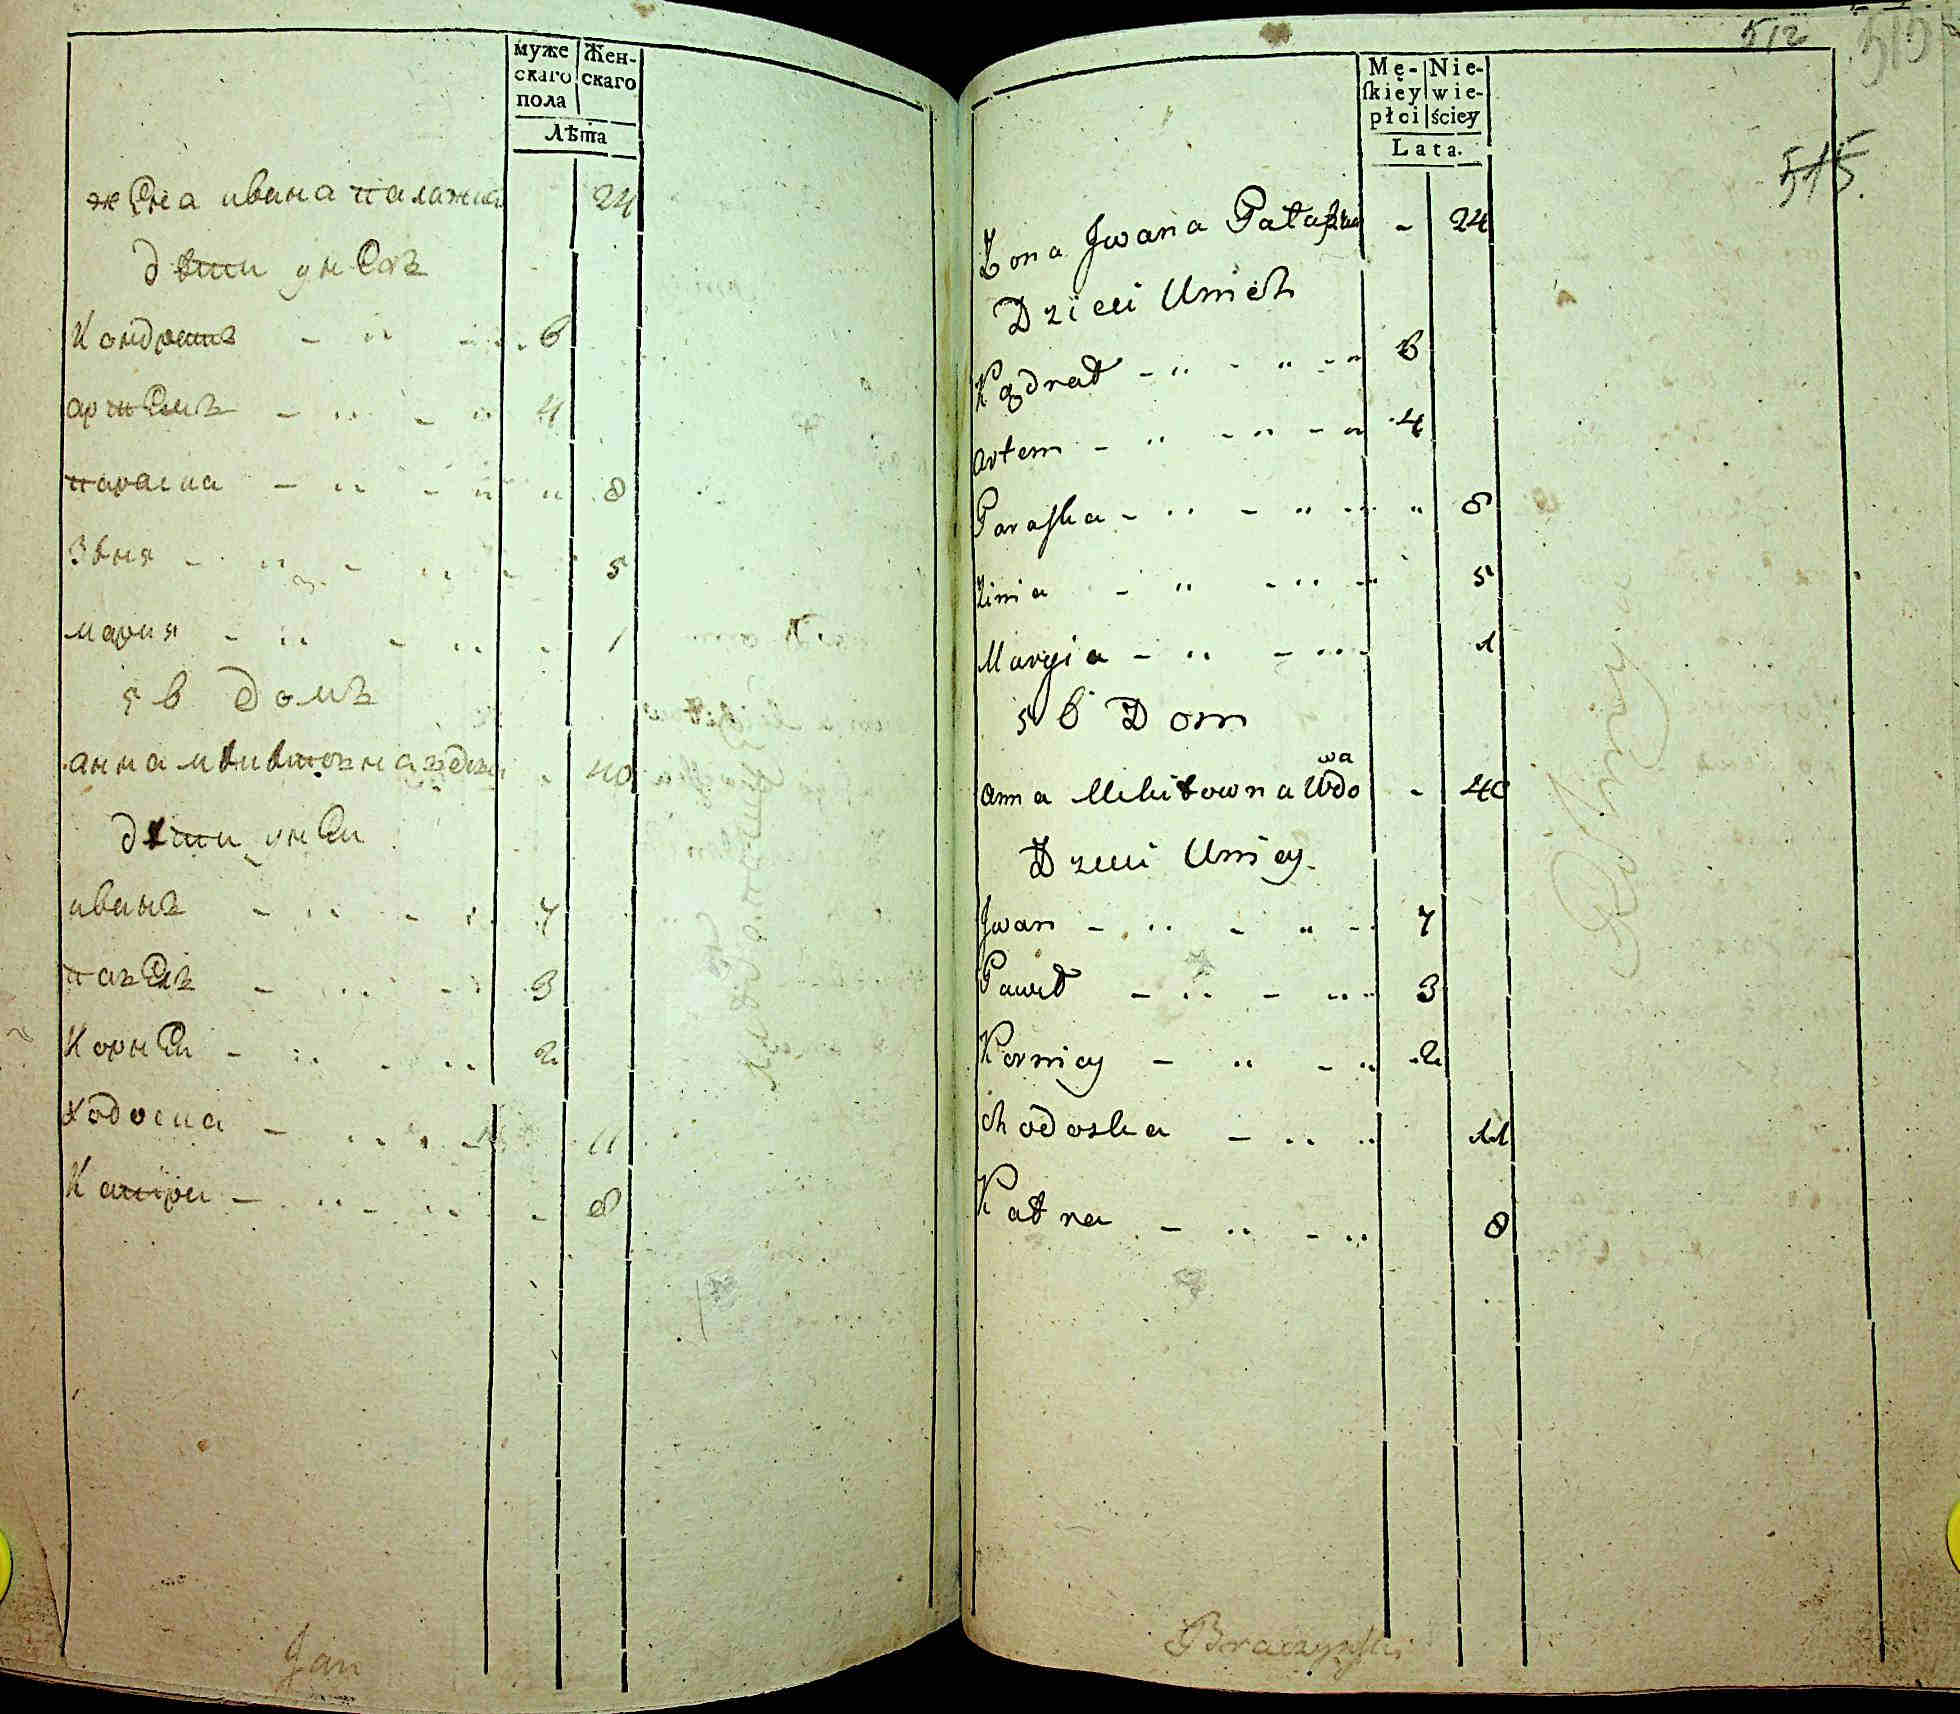 муже Жен-
скаго скаго
пола
Лѣта
жена ивана палажка 24
дѣти унихъ
Кондратъ - " - " 6
артемъ - " - " 4
параска - " - " " 8
Зѣня - " - " - 5
мария - " - " - 1
5 6 Домъ
анна мѣкѣтовна вдова - 40
дѣти унеи
иванъ - " - " 7
павелъ - " - " 3
Корнеи - " - " 2
ходоска - " " - 11
Катря - " - " - 8
Jan
512
515.
Mę- Nie-
ſkiey wie-
płci ściey
Lata.
Żona Jwana Pałażka - 24
Dzieci Unich
Kądrat - " - " - " 6
artem - " - " - " 4
Paraſka - " - " - " 8
Zinia - " - " - 5
Maryia - " - " - 1
5 6 Dom
anna Mikitowna Wdowa - 40
Dzieci Uniey.
Jwan - " - " - 7
Paweł - " - " 3
Korniey - " - " 2
chodoska - " " 11
Katra - " - " 8